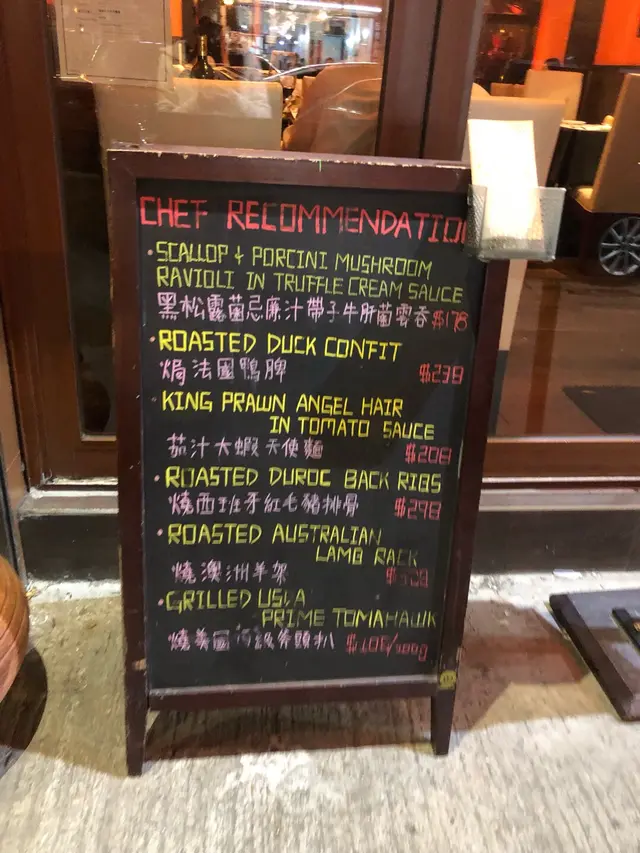 CHEF RECOMMENDATIO
· SCALLOP & PORCINI MUSHROOM
RAVIOLI IN TRUFFLE CREAM SAUCE
黑松露菌忌廉汁帶子牛肝菌雲吞 $178
· ROASTED DUCK CONFIT
焗法國鴨脾 $238
· KING PRAWN ANGEL HAIR
IN TOMATO SAUCE
茄汁大蝦天使麵 $208
· ROASTED DUROC BACK RIBS
燒西班牙紅毛豬排骨 $298
· ROASTED AUSTRALIAN
LAMB RACK
燒澳洲羊架
· GRILLED USDA
PRIME TOMAHAWK
燒美國